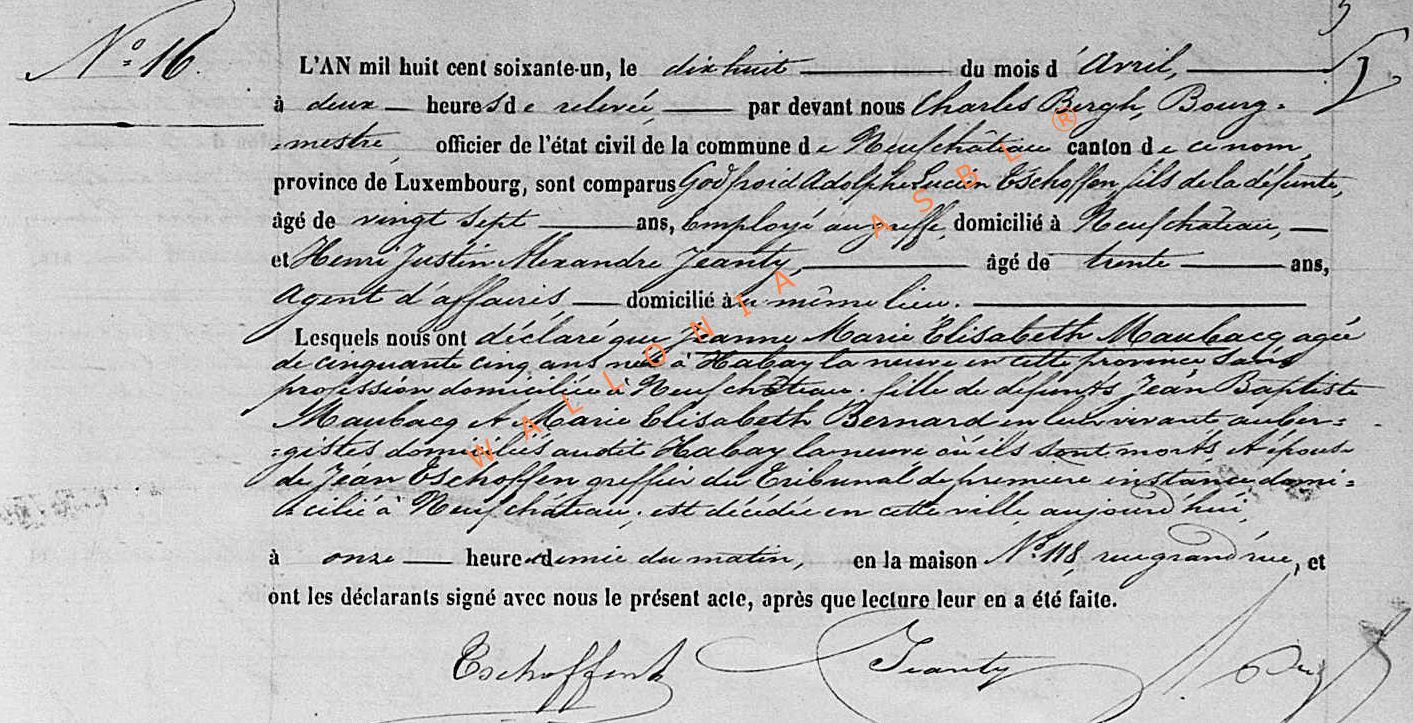 N° 16.
L'AN mil huit cent soixante-un, le dix huit du mois d'Avril,
à deux heures de relevée, par devant nous Charles Bergh, Bourg-
-mestre, officier de l'état civil de la commune de Neufchâteau canton de ce nom,
province de Luxembourg, sont comparus Godfroid Adolphe Lucien Eschoffen fils de la défunte,
âgé de vingt sept ans, Employé au greffe, domicilié à Neufchâteau,
et Henri Justin Alexandre Jeanty, âgé de trente ans,
Agent d'affaires domicilié au même lieu.
Lesquels nous ont déclaré que Jeanne Marie Élisabeth Maubacq agée
de cinquante cinq ans née à Habay la neuve en cette province sans
profession domiciliée à Neufchâteau, fille de défunts Jean Baptiste
Maubacq et Marie Elisabeth Bernard en leur vivant auber-
-gistes domiciliés audit Habay la neuve où ils sont morts et épouse
de Jean Eschoffen greffier du Tribunal de première instance domi-
cilié à Neufchâteau, est décédée en cette ville aujourd'hui,
à onze heures et demie du matin, en la maison N° 118, rue grand'rue, et
ont les déclarants signé avec nous le présent acte, après que lecture leur en a été faite.
Eschoffen Jeanty
WALLONIA ASBL ®